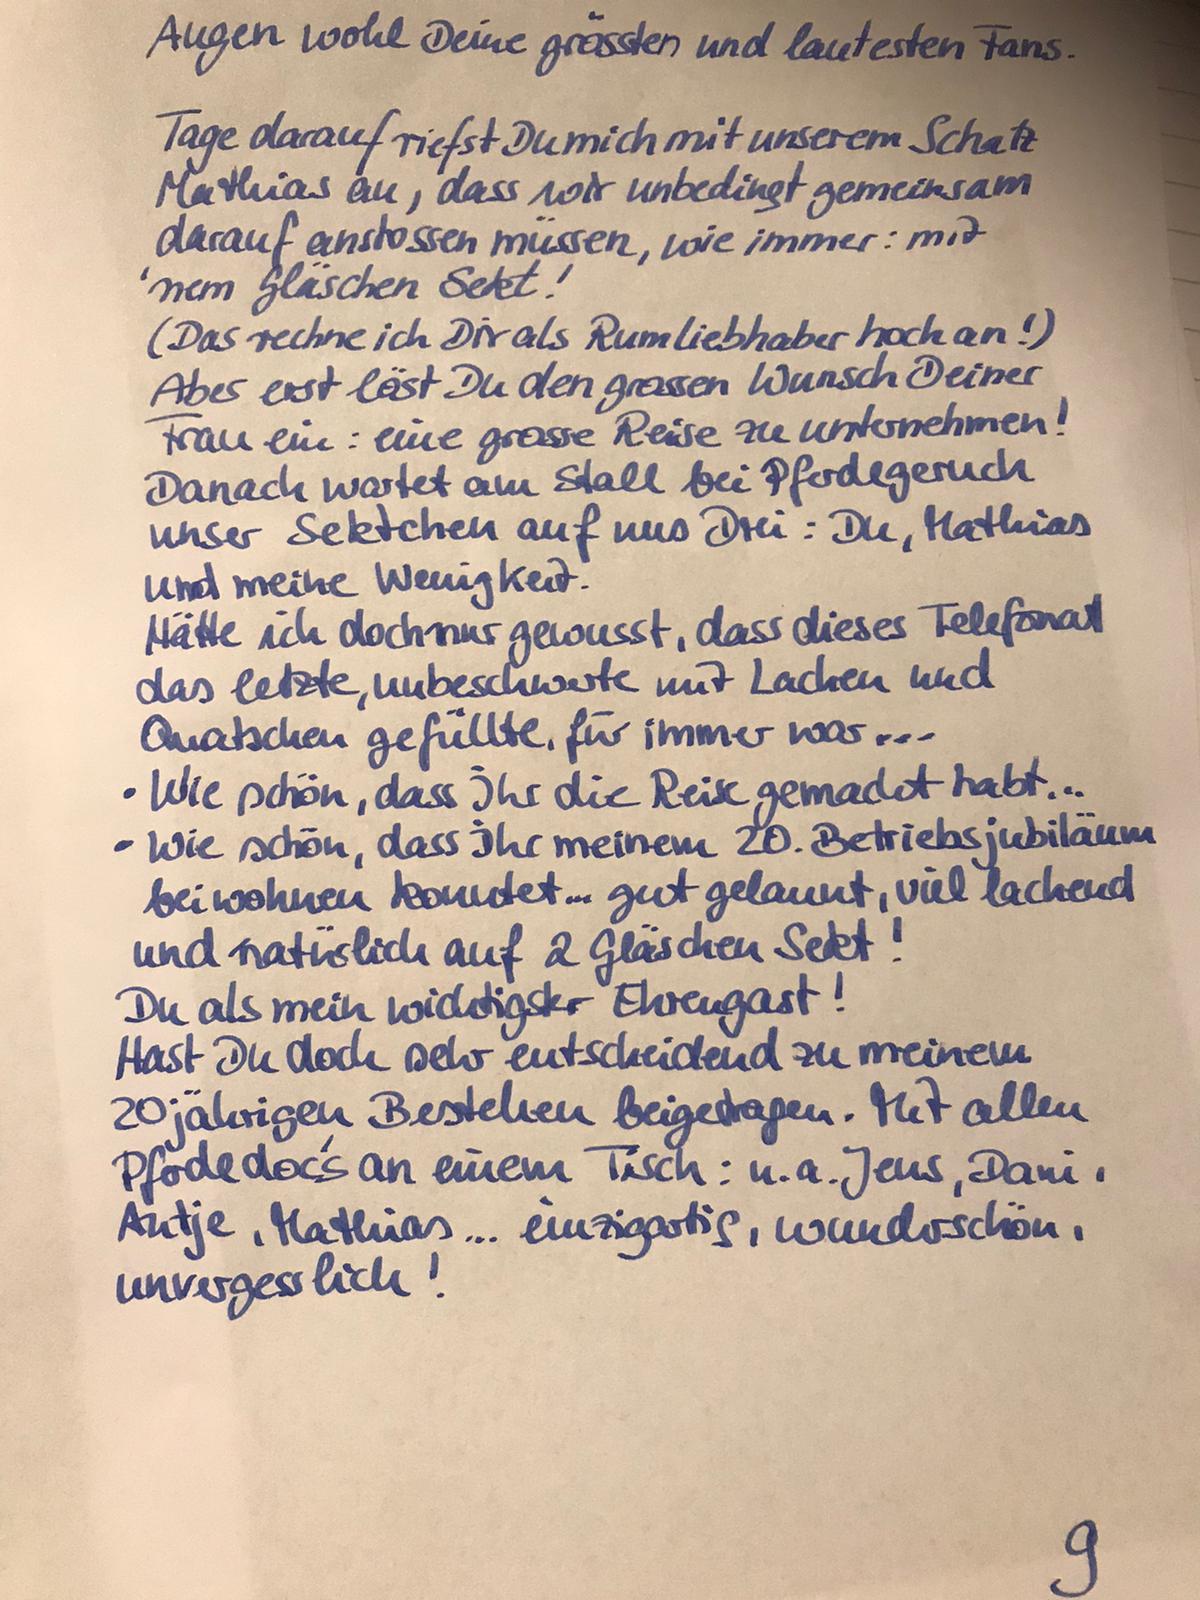 Augen wohl Deine grössten und lautesten Fans.
Tage darauf riefst Du mich mit unserem Schatz
Mathias an, dass wir unbedingt gemeinsam
darauf anstossen müssen, wie immer: mit
'nem Gläschen Sekt!
(Das rechne ich Dir als Rumliebhaber hoch an!)
Aber erst löst Du den grossen Wunsch Deiner
Frau ein: eine grosse Reise zu unternehmen!
Danach wartet am Stall bei Pferdegeruch
unser Sektchen auf uns Drei: Du, Mathias
und meine Wenigkeit.
Hätte ich doch nur gewusst, dass dieses Telefonat
das letzte, unbeschwerte mit Lachen und
Quatschen gefüllte, für immer war...
• Wie schön, dass Ihr die Reise gemacht habt...
• Wie schön, dass Ihr meinem 20. Betriebsjubiläum
beiwohnen konntet... gut gelaunt, viel lachend
und natürlich auf 2 Gläschen Sekt!
Du als mein wichtigster Ehrengast!
Hast Du doch sehr entscheidend zu meinem
20jährigen Bestehen beigetragen. Mit allen
Pferdedoc's an einem Tisch: u.a. Jens, Dani,
Antje, Mathias... einzigartig, wunderschön,
unvergesslich!
9